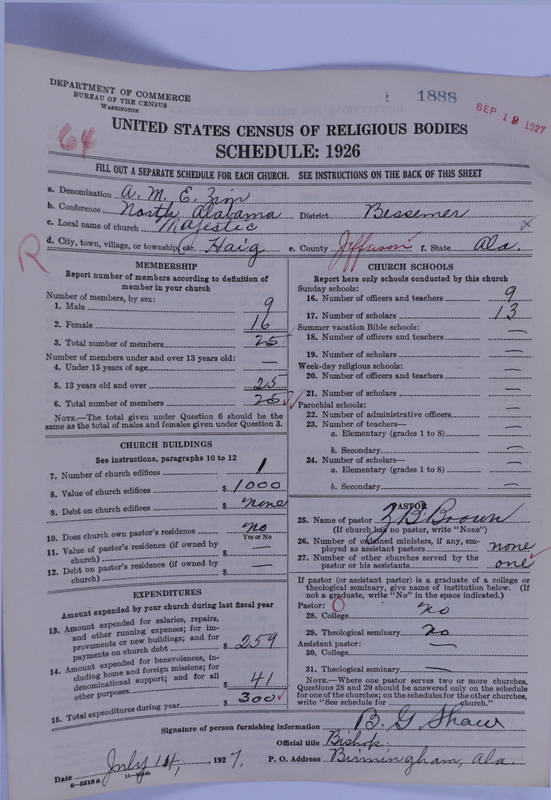 DEPARTMENT OF COMMERCE
BUREAU OF THE CENSUS
WASHINGTON
1888
SEP 19 1927
64
UNITED STATES CENSUS OF RELIGIOUS BODIES
SCHEDULE: 1926
FILL OUT A SEPARATE SCHEDULE FOR EACH CHURCH. SEE INSTRUCTIONS ON THE BACK OF THIS SHEET
a. Denomination A. M. E. Zion
b. Conference North Alabama District Bessemer
c. Local name of church Majestic
d. City, town, village, or township, etc. Haig e. County Jefferson f. State Ala.
R
MEMBERSHIP
Report number of members according to definition of
member in your church
Number of members, by sex:
1. Male 9
2. Female 16
3. Total number of members 25
Number of members under and over 13 years old:
4. Under 13 years of age —
5. 13 years old and over 25
6. Total number of members 25
NOTE.—The total given under Question 6 should be the
same as the total of males and females given under Question 3.
CHURCH BUILDINGS
See instructions, paragraphs 10 to 12
7. Number of church edifices 1
8. Value of church edifices $ 1000
9. Debt on church edifices $ none
10. Does church own pastor's residence? no
Yes or No
11. Value of pastor's residence (if owned by
church) $ —
12. Debt on pastor's residence (if owned by
church) $ —
EXPENDITURES
Amount expended by your church during last fiscal year
13. Amount expended for salaries, repairs,
and other running expenses; for im-
provements or new buildings; and for
payments on church debt $ 259
14. Amount expended for benevolences, in-
cluding home and foreign missions; for
denominational support; and for all
other purposes $ 41
15. Total expenditures during year $ 300
CHURCH SCHOOLS
Report here only schools conducted by this church
Sunday schools:
16. Number of officers and teachers 9
17. Number of scholars 13
Summer vacation Bible schools:
18. Number of officers and teachers —
19. Number of scholars —
Week-day religious schools:
20. Number of officers and teachers —
21. Number of scholars —
Parochial schools:
22. Number of administrative officers —
23. Number of teachers—
a. Elementary (grades 1 to 8) —
b. Secondary —
24. Number of scholars—
a. Elementary (grades 1 to 8) —
b. Secondary —
PASTOR
25. Name of pastor Z B Brown
(If church has no pastor, write "None")
26. Number of ordained ministers, if any, em-
ployed as assistant pastors none
27. Number of other churches served by the
pastor or his assistants one
If pastor (or assistant pastor) is a graduate of a college or
theological seminary, give name of institution below. (If
not a graduate, write "No" in the space indicated.)
Pastor:
28. College no
29. Theological seminary no
Assistant pastor: —
30. College
31. Theological seminary —
NOTE.—Where one pastor serves two or more churches,
Questions 28 and 29 should be answered only on the schedule
for one of the churches; on the schedules for the other churches,
write "See schedule for church."
Signature of person furnishing information B. G. Shaw
Official title Bishop
Date July 14, 1927. P. O. Address Birmingham, Ala.